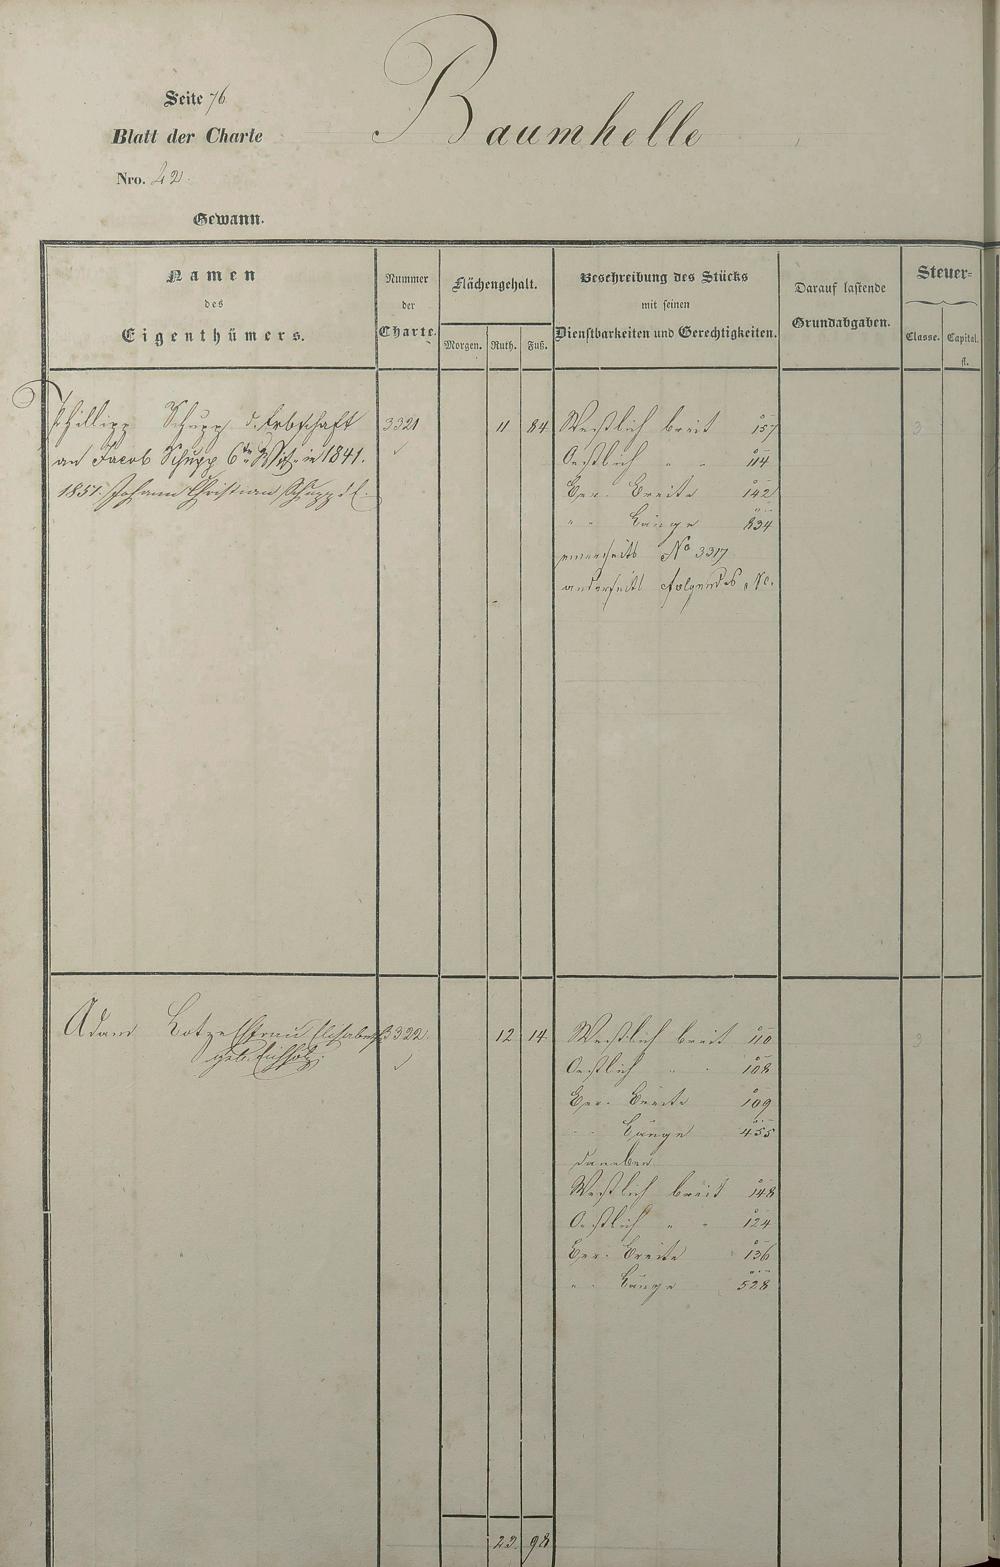 Baumhelle
Seite 76
Blatt der Charte
Nro. 42.
Gewann.
Namen des Eigenthümers.
Nummer der Charte.
Flächengehalt.
Morgen. Ruth. Fuß.
Beschreibung des Stücks
mit seinen
Dienstbarkeiten und Gerechtigkeiten.
Darauf lastende
Grundabgaben.
Steuer=
Classe. Capital.
fl.
Phillipp Schupp d. Erbschaft 3321 11 84 Westlich breit 157 3
an Jacob Schupp 6te in 1841. Oestlich " " 114
1851. Johann Christian Schupp Ver. Breite 142
" " Länge 834
einerseits No 3317
anderseits folgendes No.
Adam Lotz Ehefrau Elisabeth 3322. 12 14 Westlich breit 110 3
geb. Eichholz. Oestlich " " 108
Ver. Breite 109
" " Länge 455
daneben
Westlich breit 148
Oestlich " " 124
Ver. Breite 136
" " Länge 528
23 98